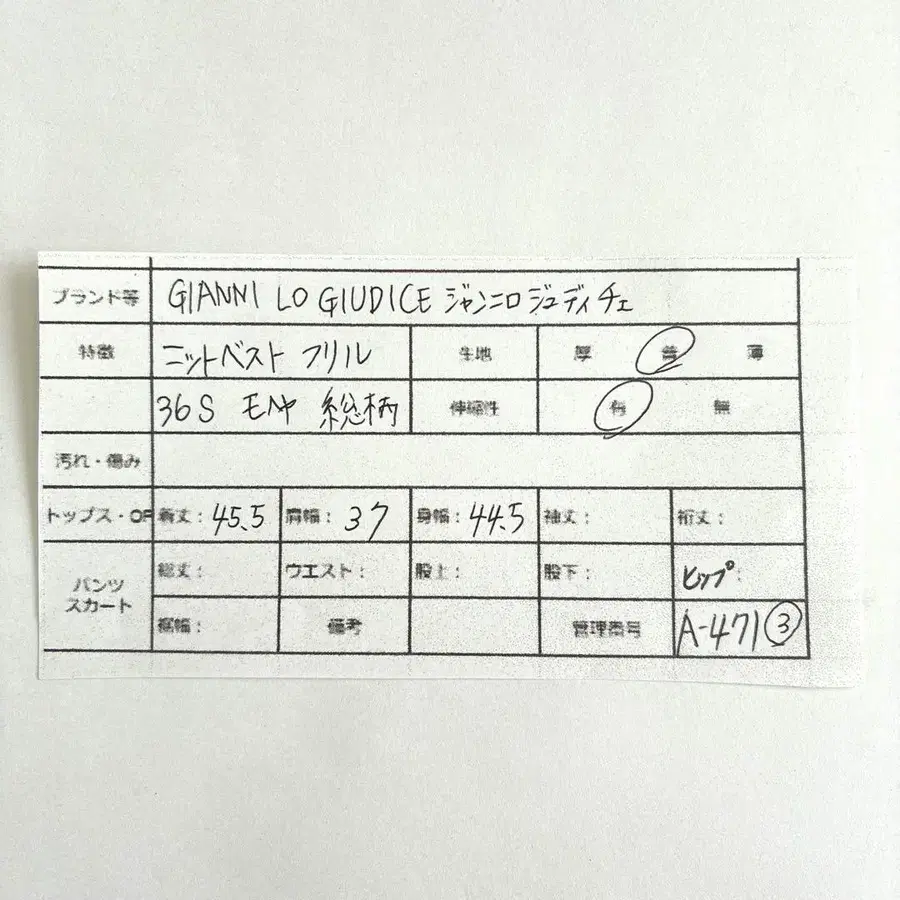 ブランド等 GIANNI LO GIUDICE ジャンニロジュディチェ
特徴 ニットベスト フリル 生地 厚 普 薄
36S 総柄 伸縮性 有 無
汚れ・傷み
トップス・OP 着丈: 45.5 肩幅: 37 身幅: 44.5 袖丈: 裄丈:
パンツ スカート 総丈: ウエスト: 股上: 股下: ヒップ:
裾幅: 備考 管理番号 A-471③